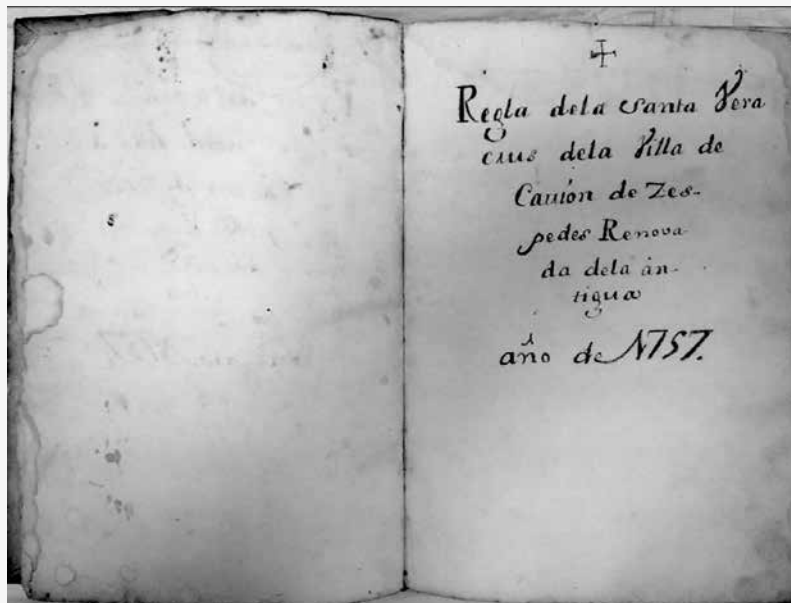 Regla dela Santa Vera
crus dela Villa de
Carrión de Zes-
pedes Renova-
da dela an-
tigua
año de 1757.